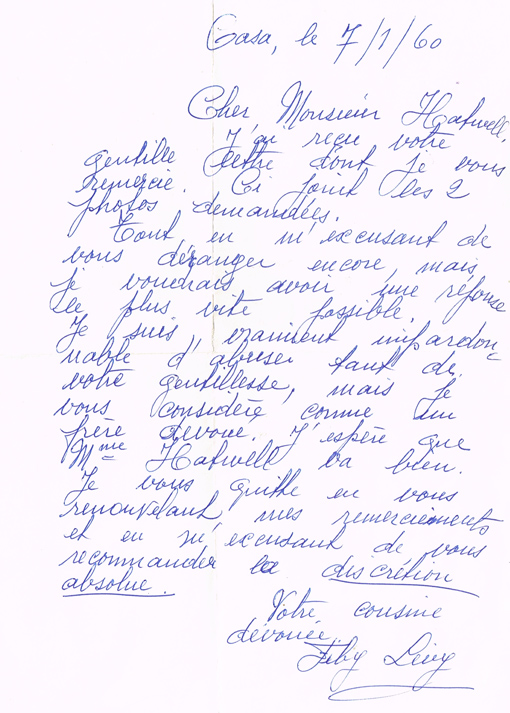 Casa, le 7/1/60
Cher Monsieur Hatwell,
J'ai reçu votre
gentille lettre dont je vous
remercie. Ci joint les 2
photos demandées.
Tout en m'excusant de
vous déranger encore, mais
je voudrais avoir une réponse
le plus vite possible.
Je suis vraiment impardon-
nable d'abuser tant de
votre gentillesse, mais je
vous considère comme un
frère dévoué. J'espère que
Mme Hatwell va bien.
Je vous quitte en vous
renouvelant mes remerciements
et en m'excusant de vous
recommander la discrétion
absolue.
Votre cousine
dévouée
Fiby Lévy